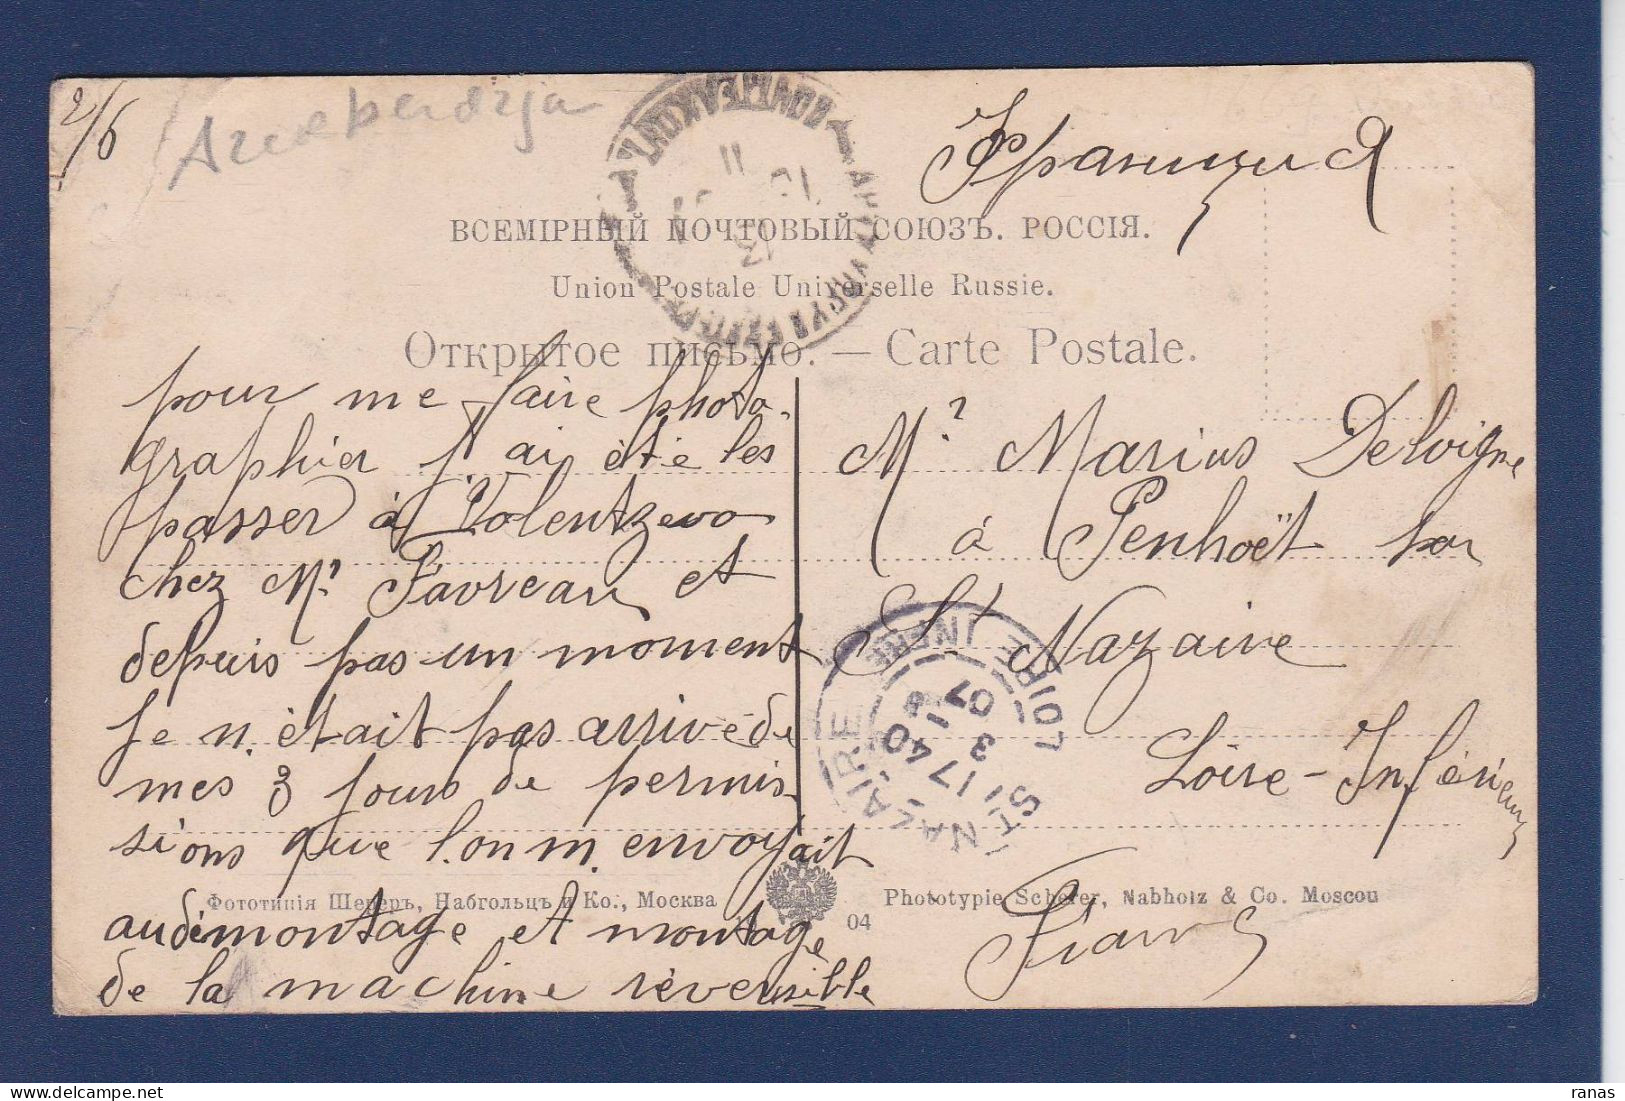 2/6
Франція
ВСЕМІРНЫЙ ПОЧТОВЫЙ СОЮЗЪ. РОССІЯ.
Union Postale Universelle Russie.
Открытое письмо. — Carte Postale.
pour me faire photo-
graphier j'ai été les
passer à Volentzevo
chez Mr. Favreau et
depuis pas un moment
Je n'était pas arrivé de
mes 3 jours de permis-
sions que l'on m'envoyait
au démontage et montage
de la machine réversible
Mr. Marius Delvigne
à Penhoët par
St Nazaire
Loire-Inférieure
France
ST NAZAIRE LOIRE INFRE
17 40
3 - 11
07
Фототипія Шереръ, Набгольцъ и Ко., Москва
04
Phototypie Scherer, Nabholz & Co. Moscou
ranas